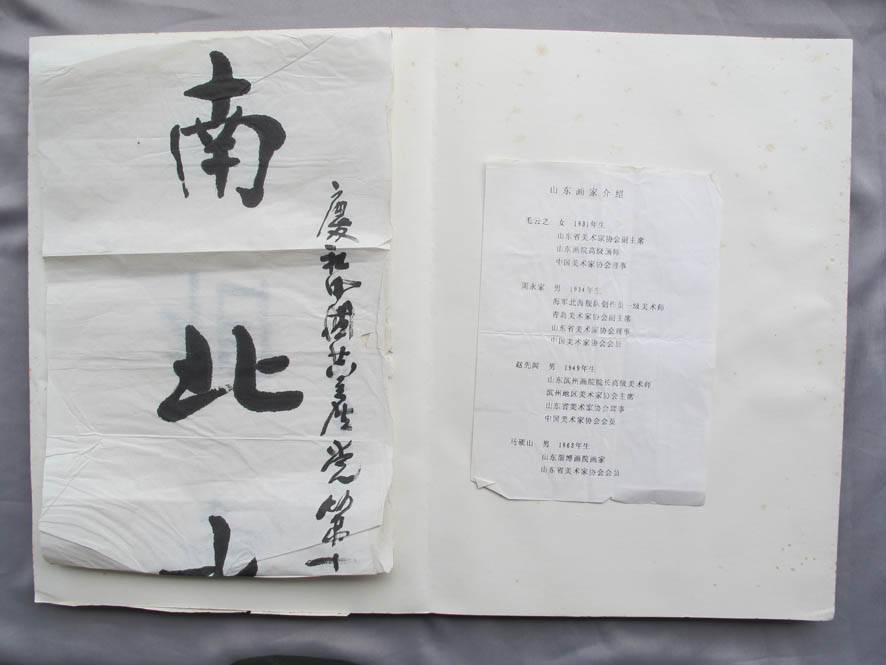 南
北
慶祝中國共產党第十
山东画家介绍
毛云之 女 1931年生
山东省美术家协会副主席
山东画院高级画师
中国美术家协会理事
周永家 男 1934年生
海军北海舰队创作员一级美术师
青岛美术家协会副主席
山东省美术家协会理事
中国美术家协会会员
赵先闻 男 1949年生
山东滨州画院院长高级美术师
滨州地区美术家协会主席
山东省美术家协会理事
中国美术家协会会员
马硕山 男 1963年生
山东淄博画院画家
山东省美术家协会会员